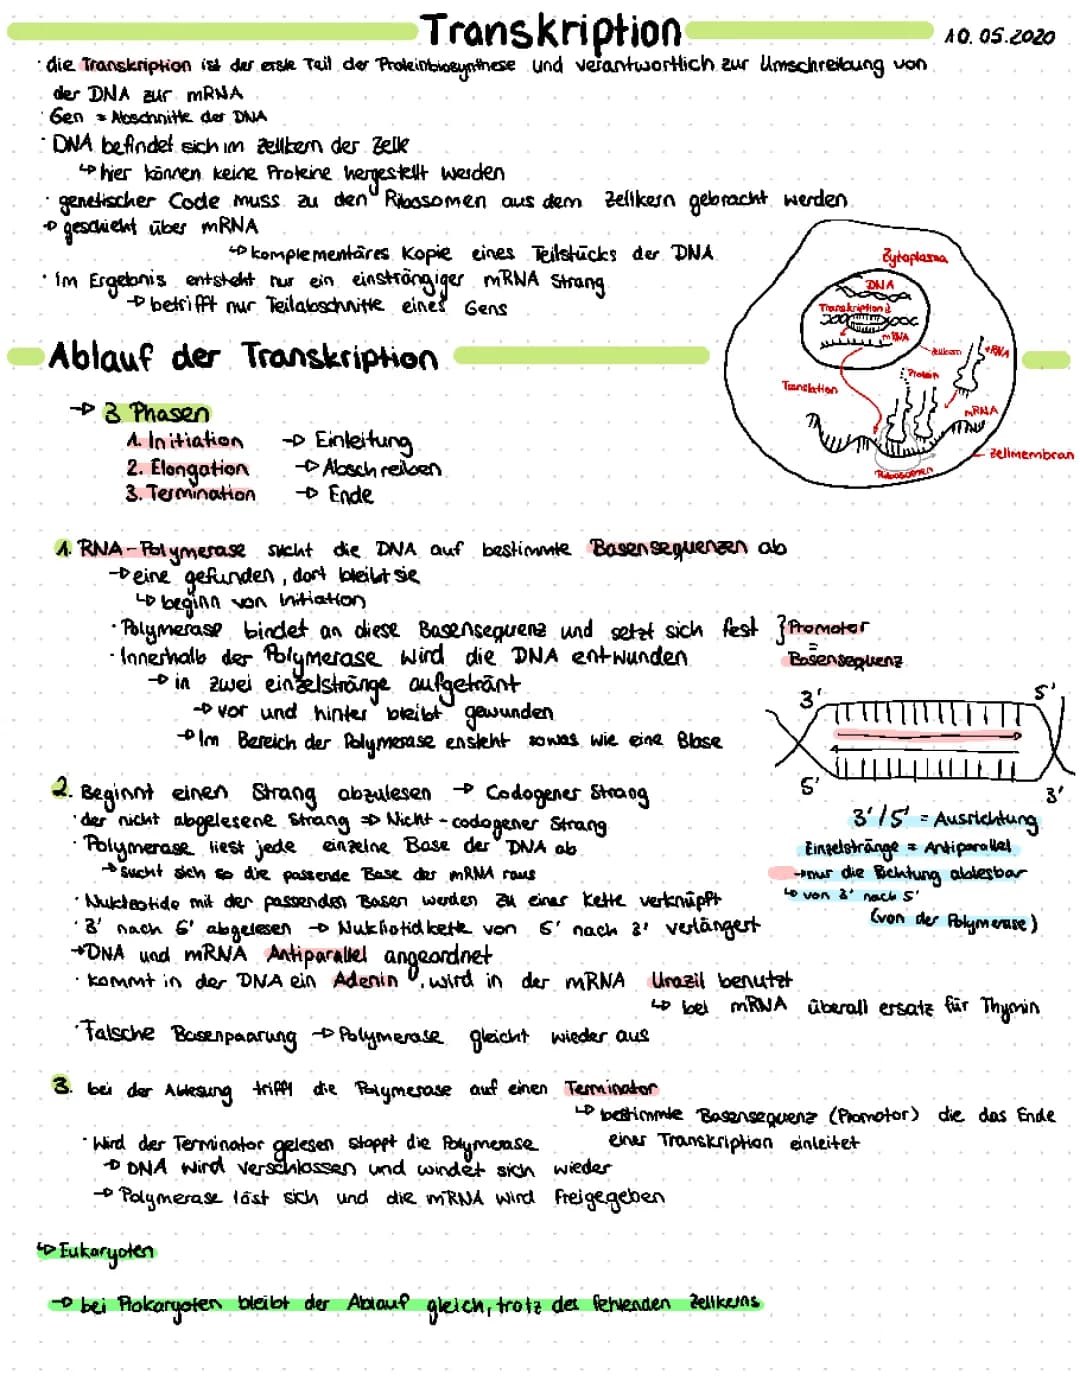 Transkription
10.05.2020
· die Transkription ist der erste Teil der Proteinbiosynthese und verantwortlich zur Umschreibung von
der DNA zur mRNA
· Gen = Abschnitte der DNA
· DNA befindet sich im Zellkern der Zelle
↳ hier können keine Proteine hergestellt werden
· genetischer Code muss zu den Ribosomen aus dem Zellkern gebracht werden
→ geschieht über mRNA
↳ komplementäres Kopie eines Teilstücks der DNA
· im Ergebnis entsteht nur ein einsträngiger mRNA Strang
→ betrifft nur Teilabschnitte eines Gens
Zytoplasma
DNA
Transkription
mRNA
Zellkern
tRNA
Protein
Translation
mRNA
Zellmembran
Ribosomen
Ablauf der Transkription
→ 3 Phasen
1. Initiation → Einleitung
2. Elongation → Abschreiben
3. Termination → Ende
1. RNA-Polymerase sucht die DNA auf bestimmte Basensequenzen ab
→ eine gefunden, dort bleibt sie
↳ beginn von Initiation
· Polymerase bindet an diese Basensequenz und setzt sich fest } Promoter
· Innerhalb der Polymerase wird die DNA entwunden
=
Basensequenz
→ in zwei einzelstränge aufgetränt
→ vor und hinter bleibt gewunden
→ Im Bereich der Polymerase ensteht sowas wie eine Blase
3' 5'
5' 3'
2. Beginnt einen Strang abzulesen → Codogener Strang
· der nicht abgelesene Strang ⇒ Nicht-codogener Strang
· Polymerase liest jede einzelne Base der DNA ab
→ sucht sich so die passende Base der mRNA raus
· Nukleotide mit der passenden Basen werden zu einer Kette verknüpft
· 3' nach 5' abgelesen → Nukliotidkette von 5' nach 3' verlängert
→ DNA und mRNA Antiparallel angeordnet
· kommt in der DNA ein Adenin, wird in der mRNA Urazil benutzt
↳ bei mRNA überall ersatz für Thymin
· Falsche Basenpaarung → Polymerase gleicht wieder aus
3'/5' = Ausrichtung
Einzelstränge = Antiparallel
→ nur die Richtung ablesbar
↳ von 3' nach 5'
(von der Polymerase)
3. bei der Ablesung trifft die Polymerase auf einen Terminator
↳ bestimmte Basensequenz (Promotor) die das Ende
einer Transkription einleitet
· Wird der Terminator gelesen stoppt die Polymerase
→ DNA wird verschlossen und windet sich wieder
→ Polymerase löst sich und die mRNA wird freigegeben
↳ Eukaryoten
→ bei Prokaryoten bleibt der Ablauf gleich, trotz des fehlenden Zellkerns